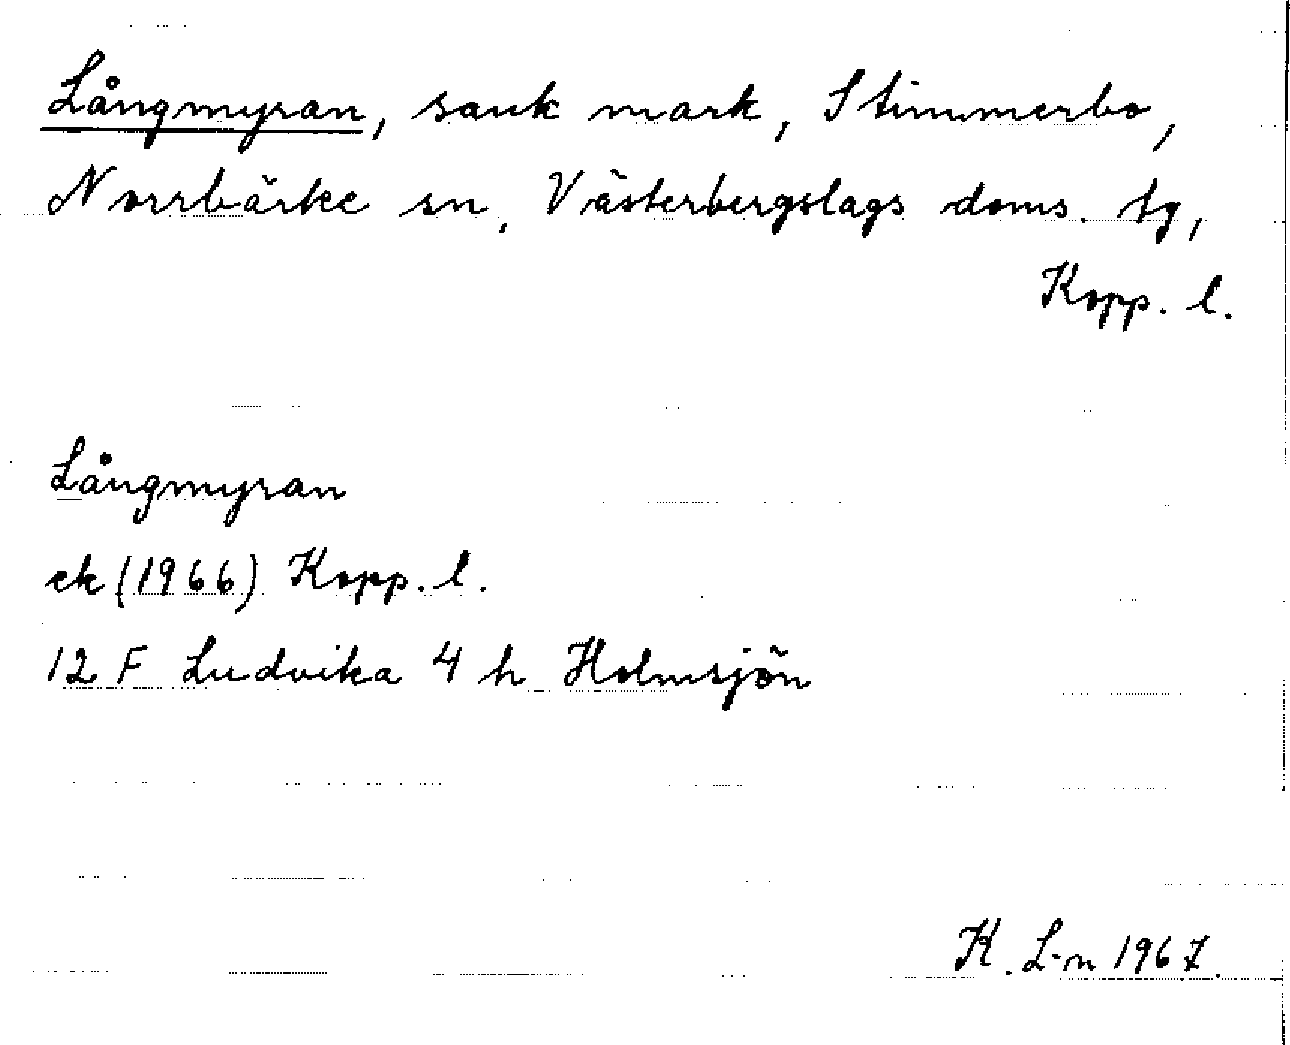 Långmyran, sank mark, Stimmerbo,
Norrbärke sn, Västerbergslags doms. tg,
Kopp. l.
Långmyran
ek (1966) Kopp. l.
12 F Ludvika 4 h Holmsjön
K. L-n 1967.